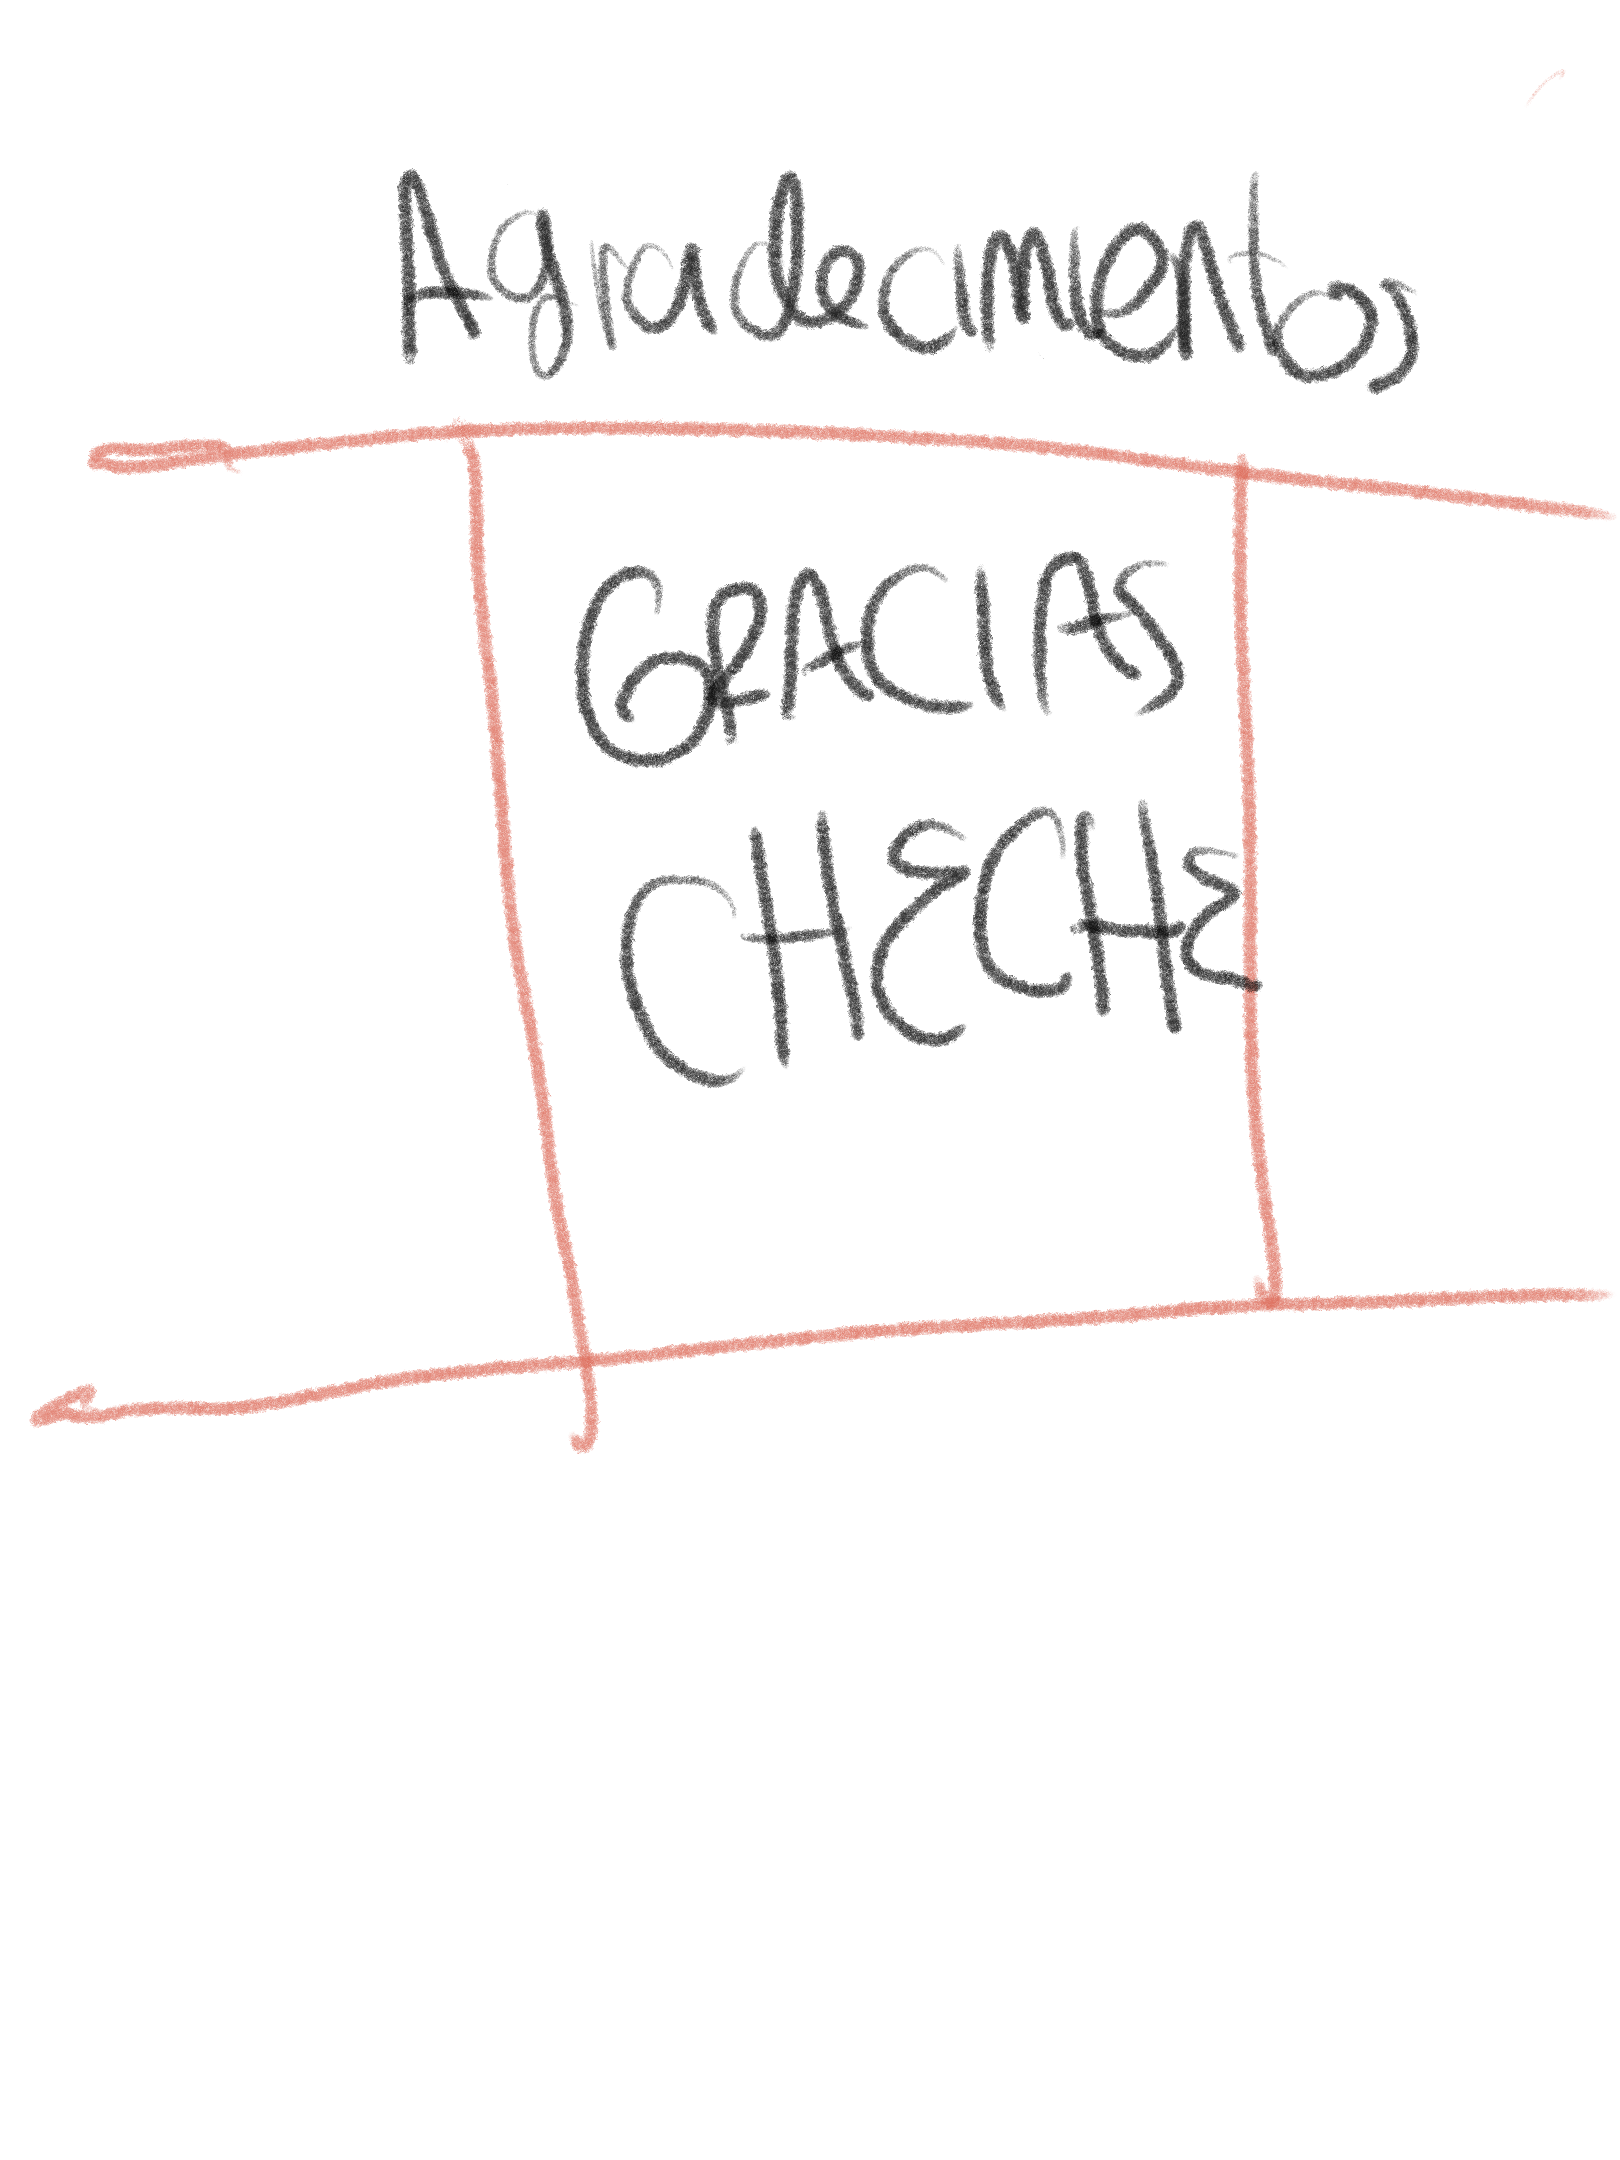 Agradecimientos
GRACIAS
CHECHE